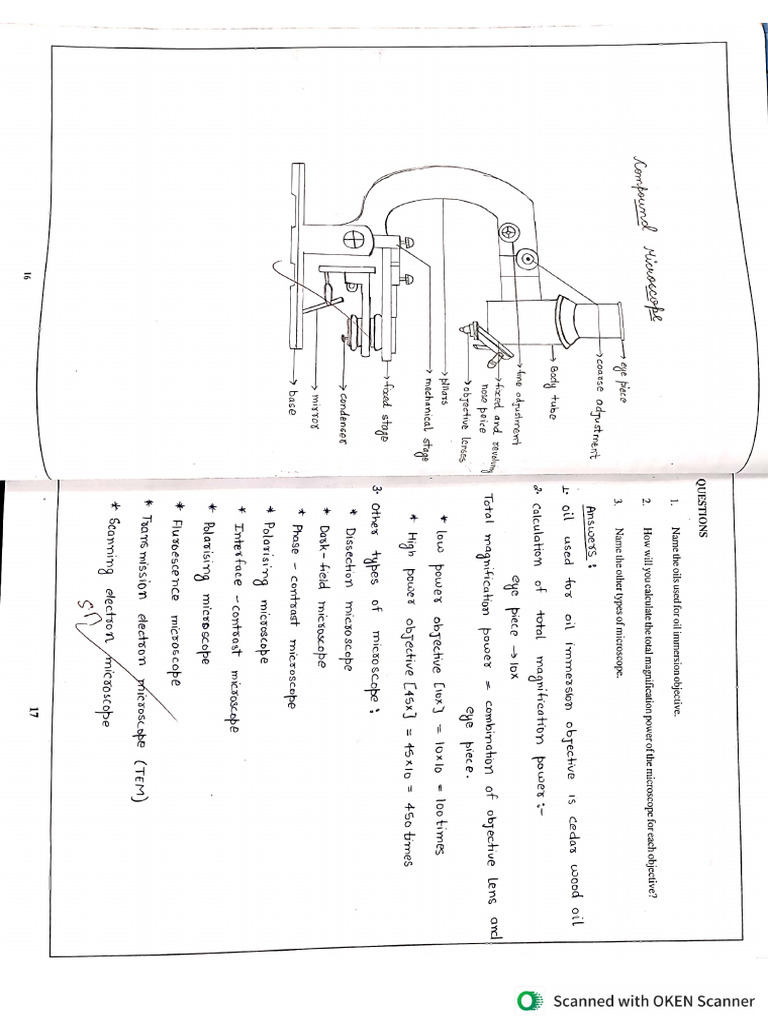 Compound Microscope
eye piece
coarse adjustment
Body tube
fine adjustment
fixed and revolving
nose peice
objective lenses
pillars
mechanical stage
fixed stage
condenser
mirror
base
16
QUESTIONS
1. Name the oils used for oil immersion objective.
2. How will you calculate the total magnification power of the microscope for each objective?
3. Name the other types of microscope.
Answers :
1. oil used for oil immersion objective is cedar wood oil
2. calculation of total magnification power :-
eye piece → 10x
Total magnification power = combination of objective lens and
eye piece.
* low power objective [10x] = 10x10 = 100 times
* High power objective [45x] = 45x10 = 450 times
3. Other types of microscope :
* Dissection microscope
* Dark-field microscope
* Phase - contrast microscope
* Polarising microscope
* Interface - contrast microscope
* Polarising microscope
* Fluroescence microscope
* Transmission electron microscope (TEM)
* Scanning electron microscope
17
Scanned with OKEN Scanner